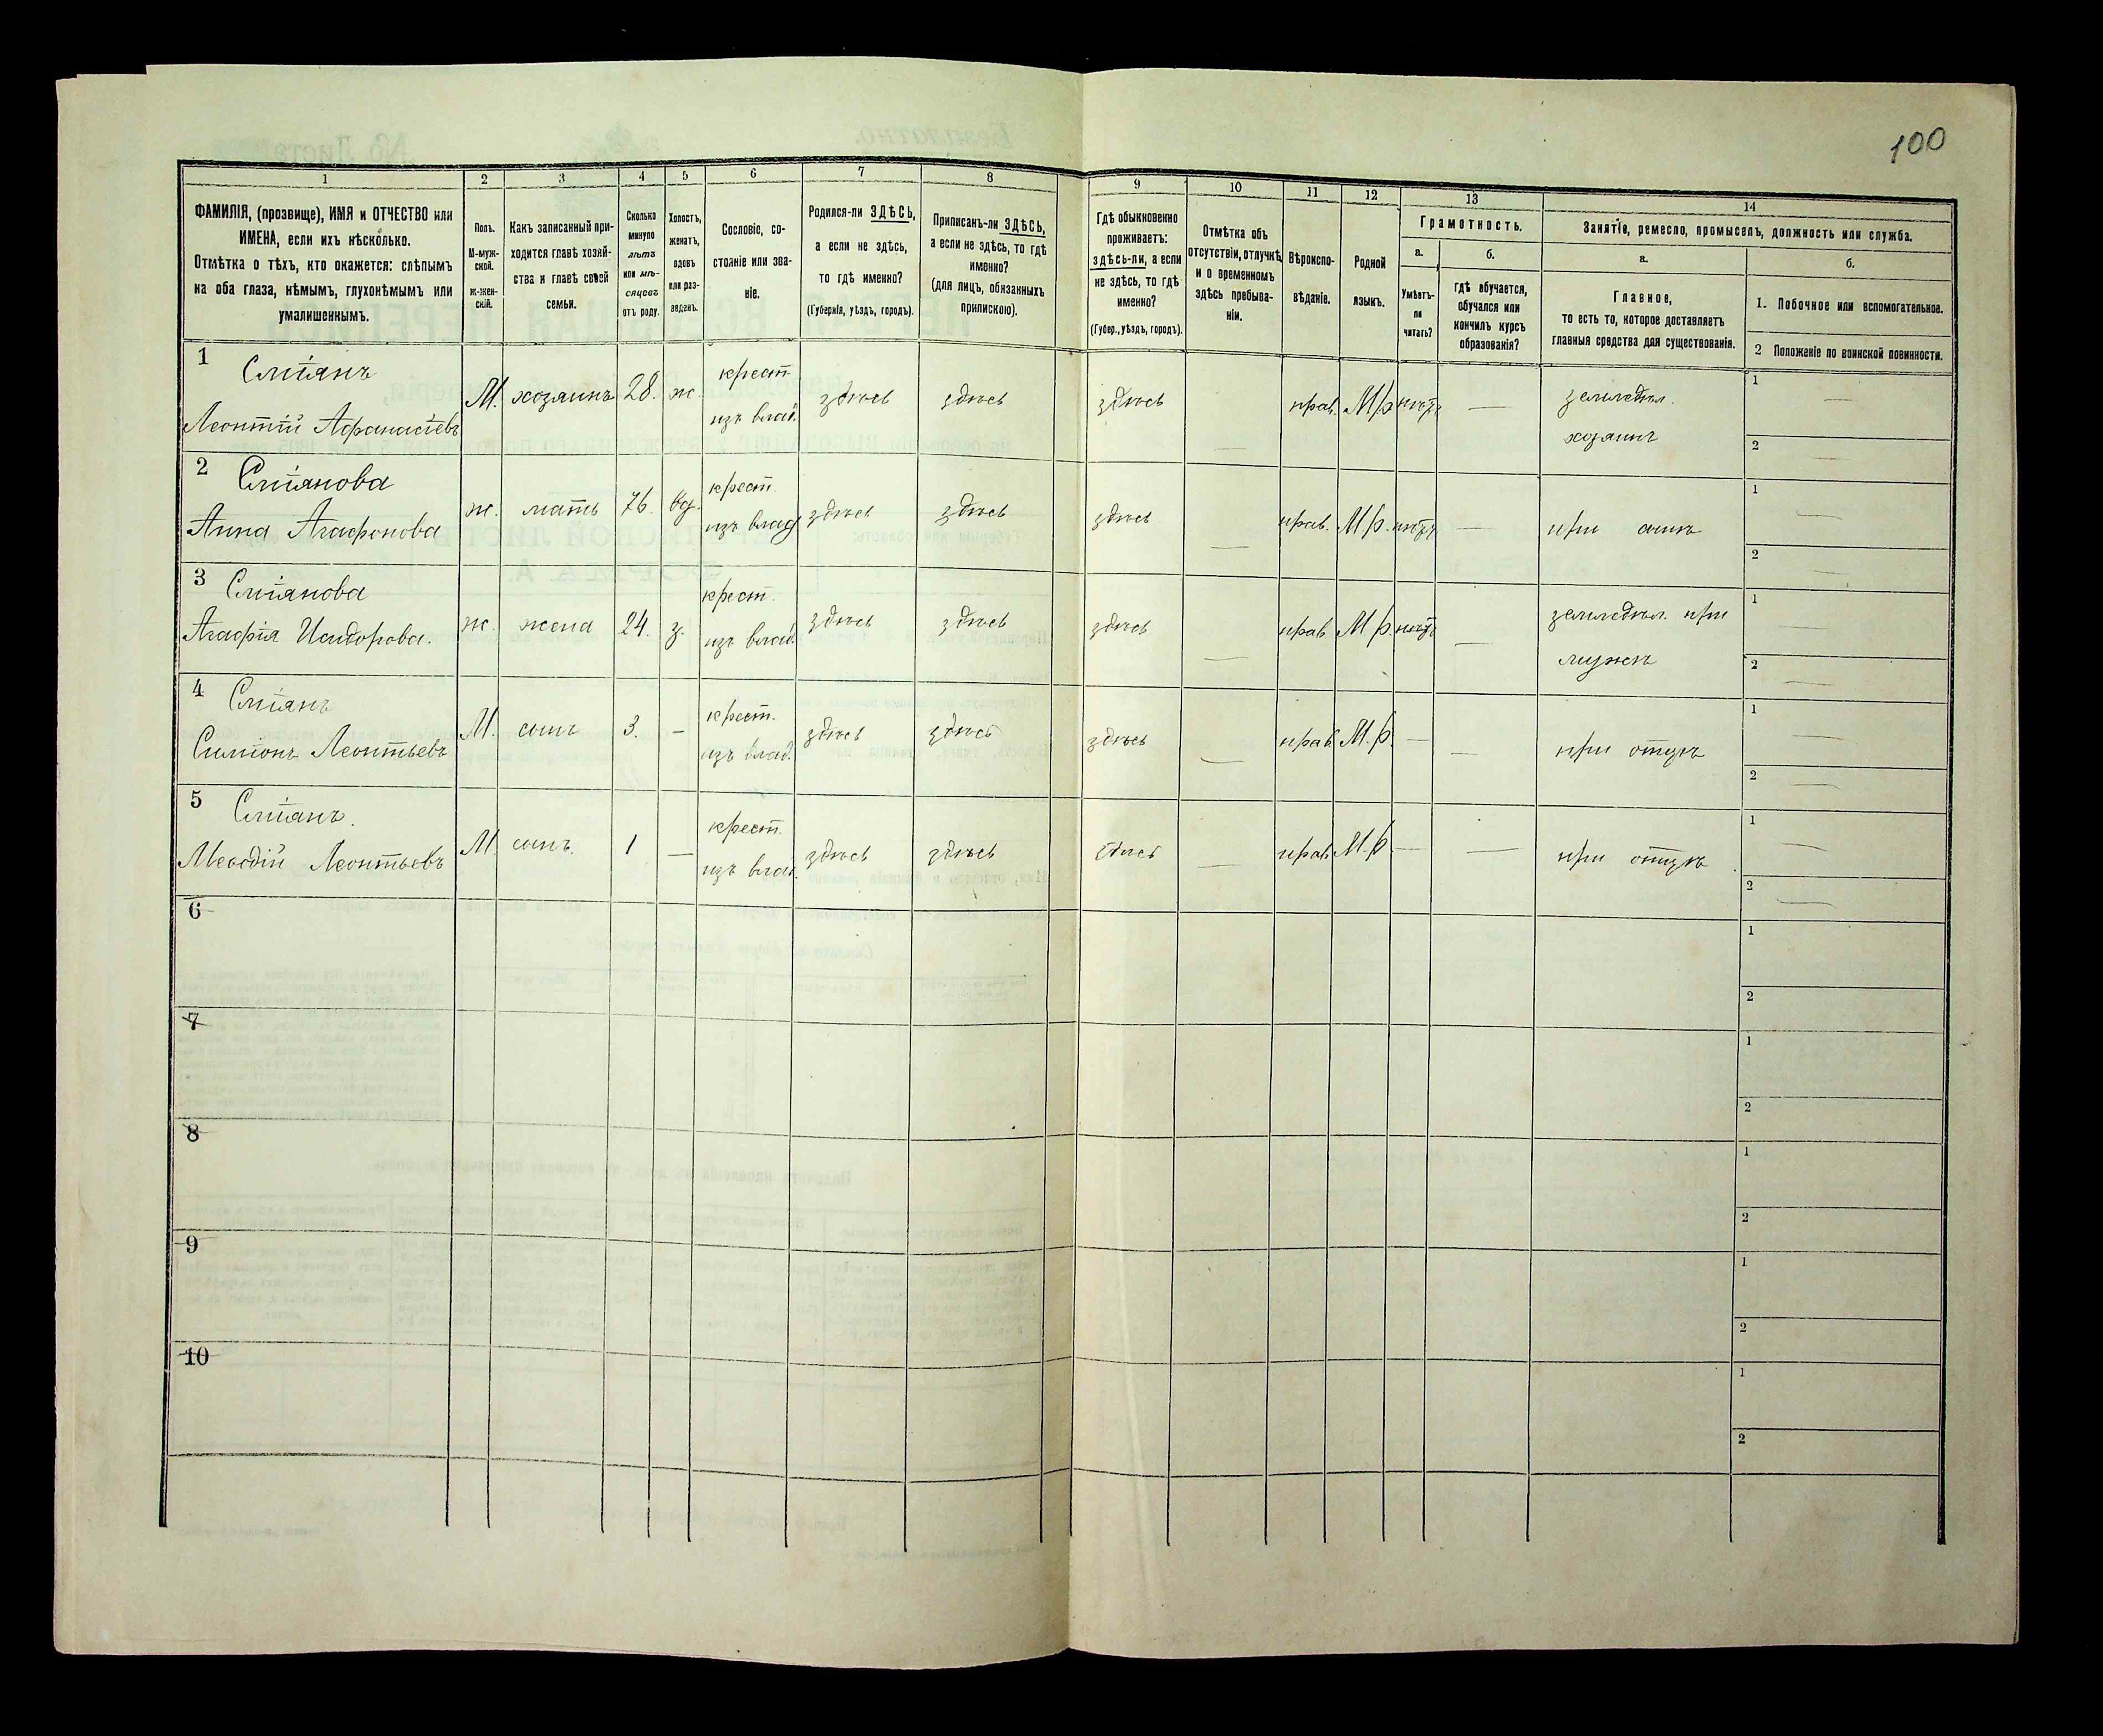 100
1 2 3 4 5 6 7 8 9 10 11 12 13 14
ФАМИЛІЯ, (прозвище), ИМЯ и ОТЧЕСТВО или
ИМЕНА, если ихъ нѣсколько.
Отмѣтка о тѣхъ, кто окажется: слѣпымъ
на оба глаза, нѣмымъ, глухонѣмымъ или
умалишеннымъ.
Полъ.
М-муж-
ской.
Ж-жен-
скій.
Какъ записанный при-
ходится главѣ хозяй-
ства и главѣ своей
семьи.
Сколько
минуло
лѣтъ
или мѣ-
сяцевъ
отъ роду.
Холостъ,
женатъ,
вдовъ
или раз-
веденъ.
Сословіе, со-
стояніе или зва-
ніе.
Родился-ли ЗДѢСЬ,
а если не здѣсь,
то гдѣ именно?
(Губернія, уѣздъ, городъ).
Приписанъ-ли ЗДѢСЬ,
а если не здѣсь, то гдѣ
именно?
(для лицъ, обязанныхъ
припискою).
Гдѣ обыкновенно
проживаетъ:
здѣсь-ли, а если
не здѣсь, то гдѣ
именно?
(Губер., уѣздъ, городъ).
Отмѣтка объ
отсутствіи, отлучкѣ
и о временномъ
здѣсь пребыва-
ніи.
Вѣроиспо-
вѣданіе.
Родной
языкъ.
Грамотность.
а.
Умѣетъ-
ли
читать?
б.
гдѣ обучается,
обучался или
кончилъ курсъ
образованія?
Занятіе, ремесло, промыселъ, должность или служба.
а.
Главное,
то есть то, которое доставляетъ
главныя средства для существованія.
б.
1. Побочное или вспомогательное.
2 Положеніе по воинской повинности.
1 Смѣянъ
Леонтій Афанасіевъ М. хозяинъ 28. ж. крест. изъ влад. здѣсь здѣсь здѣсь — прав. М.р. нѣтъ — земледѣл. хозяинъ 1 — 2 —
2 Смѣянова
Анна Агафонова ж. мать 76. вд. крест. изъ влад. здѣсь здѣсь здѣсь — прав. М.р. нѣтъ — при сынѣ 1 — 2 —
3 Смѣянова
Агафія Исидорова. ж. жена 24. з. крест. изъ влад. здѣсь здѣсь здѣсь — прав. М.р. нѣтъ — земледѣл. при мужѣ 1 — 2 —
4 Смѣянъ
Симіонъ Леонтьевъ М. сынъ 3. — крест. изъ влад. здѣсь здѣсь здѣсь — прав. М.р. — — при отцѣ 1 — 2 —
5 Смѣянъ.
Меѳодій Леонтьевъ М. сынъ. 1 — крест. изъ влад. здѣсь здѣсь здѣсь — прав. М.р. — — при отцѣ 1 — 2 —
6 1 2
7 1 2
8 1 2
9 1 2
10 1 2